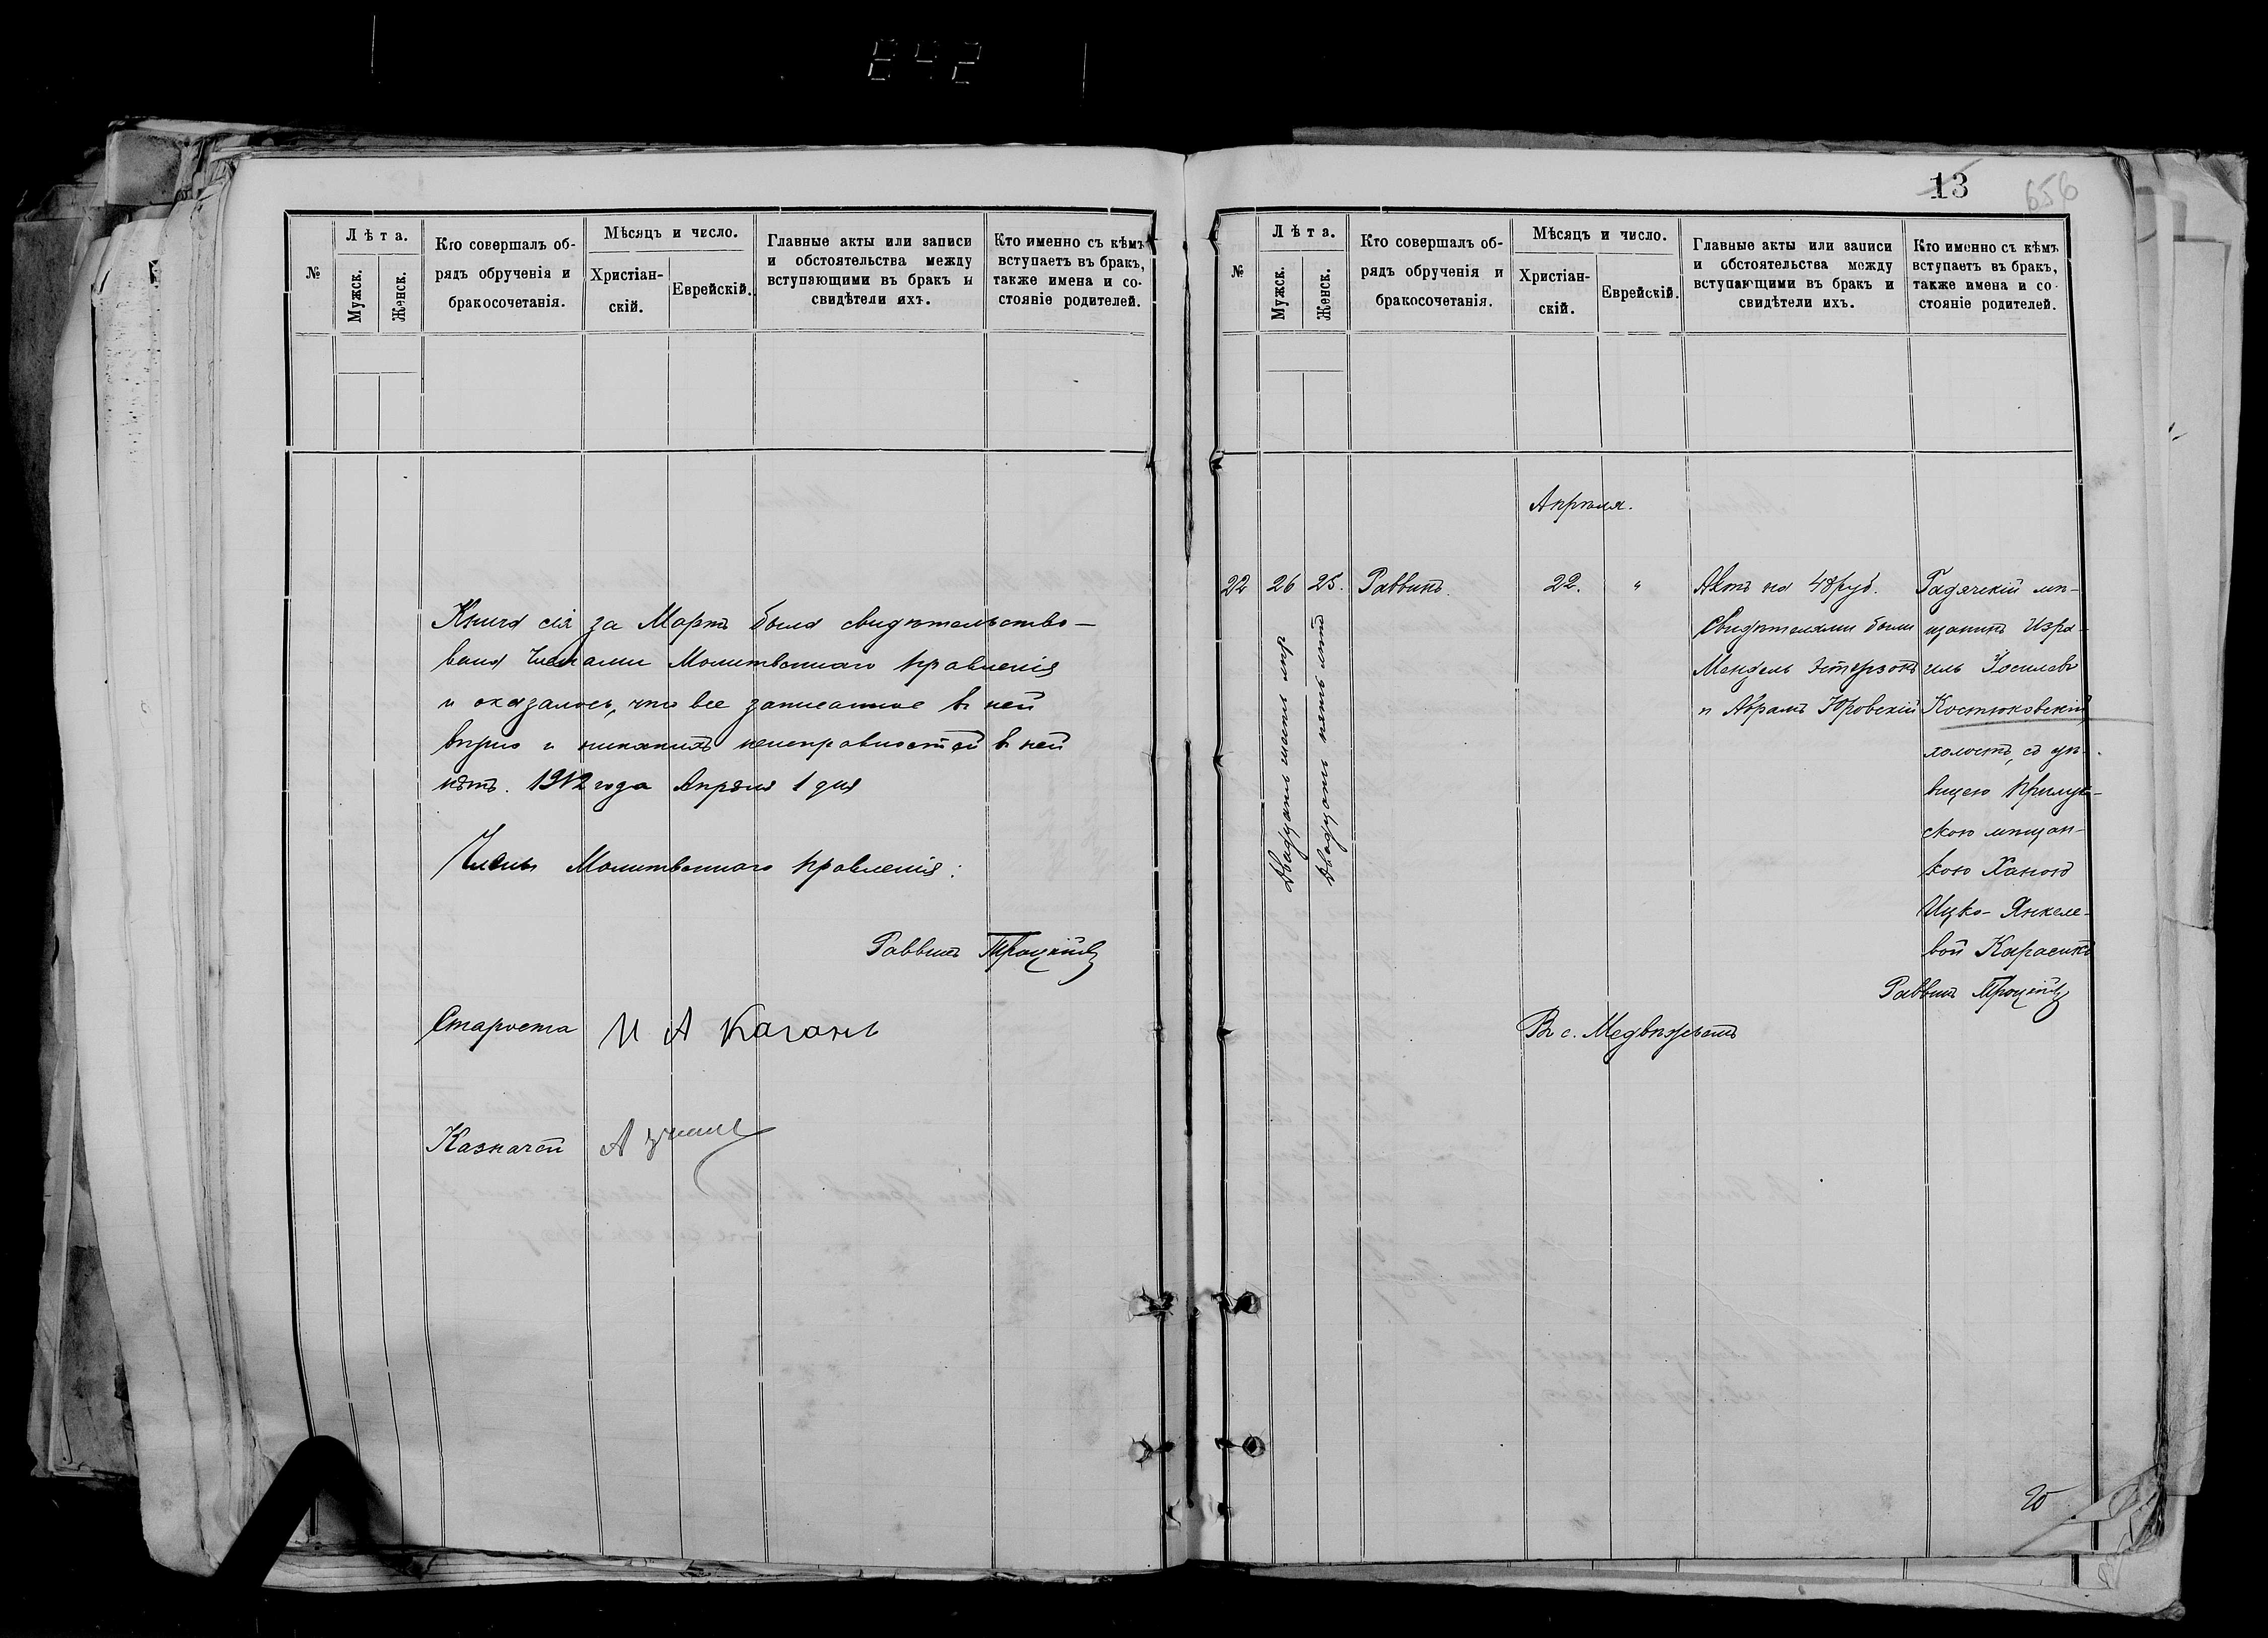 842
№
Лѣта.
Мужск.
Женск.
Кто совершалъ об-
рядъ обрученія и
бракосочетанія.
Мѣсяцъ и число.
Христіан-
скій.
Еврейскій.
Главные акты или записи
и обстоятельства между
вступающими въ бракъ и
свидѣтели ихъ.
Кто именно съ кѣмъ
вступаетъ въ бракъ,
также имена и со-
стояніе родителей.
Книга сія за Мартъ была свидѣтельство-
вана Членами Молитвеннаго правленія
и оказалось, что все записанное въ ней
вѣрно и никакихъ неисправностей въ ней
нѣтъ. 1912 года Апрѣля 1 дня
Члены Молитвеннаго правленія:
Раввинъ Троцкій
Староста И А Каганъ
Казначей А
13
656
№
Лѣта.
Мужск.
Женск.
Кто совершалъ об-
рядъ обрученія и
бракосочетанія.
Мѣсяцъ и число.
Христіан-
скій.
Еврейскій.
Главные акты или записи
и обстоятельства между
вступающими въ бракъ и
свидѣтели ихъ.
Кто именно съ кѣмъ
вступаетъ въ бракъ,
также имена и со-
стояніе родителей.
Апрѣля.
22
26
Двадцать шесть лѣтъ
25.
Двадцать пять лѣтъ
Раввинъ.
22.
"
Актъ на 48 руб.
Свидѣтелями были
Мендель Эстерзонъ
и Абрамъ Юровскій
Гадячскій мѣ-
щанинъ Изра-
иль Іосилевъ
Костюковскій
холостъ, съ дѣ-
вицею Прилук-
скою мѣщан-
кою Ханою
Ицко-Янкеле-
вой Карасикъ
Раввинъ Троцкій
Въ с. Медвѣжьемъ
20